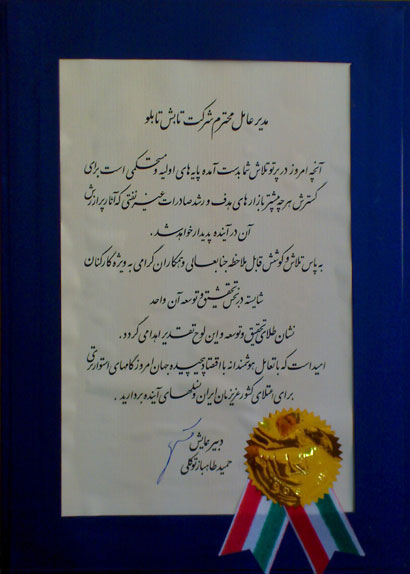 مدیر عامل محترم شرکت تابش تابلو
آنچه امروز در پرتو تلاش شما بدست آمده پایه های اولیه و مستحکمی است برای
گسترش هر چه بیشتر بازار های هدف و رشد صادرات غیر نفتی که آثار پر ارزش
آن در آینده پدیدار خواهد شد .
به پاس تلاش و کوشش قابل ملاحظه جنابعالی و همکاران گرامی به ویژه کارکنان
شایسته در بخش تحقیق و توسعه آن واحد
نشان طلای تحقیق و توسعه و این لوح تقدیر اهدا می گردد .
امید است که با تعامل هوشمندانه با اقتصاد پیچیده جهان امروز گامهای استوارتری
برای اعتلای کشور عزیزمان ایران و نسلهای آینده بردارید .
دبیر همایش
حمید طاهباز توکلی